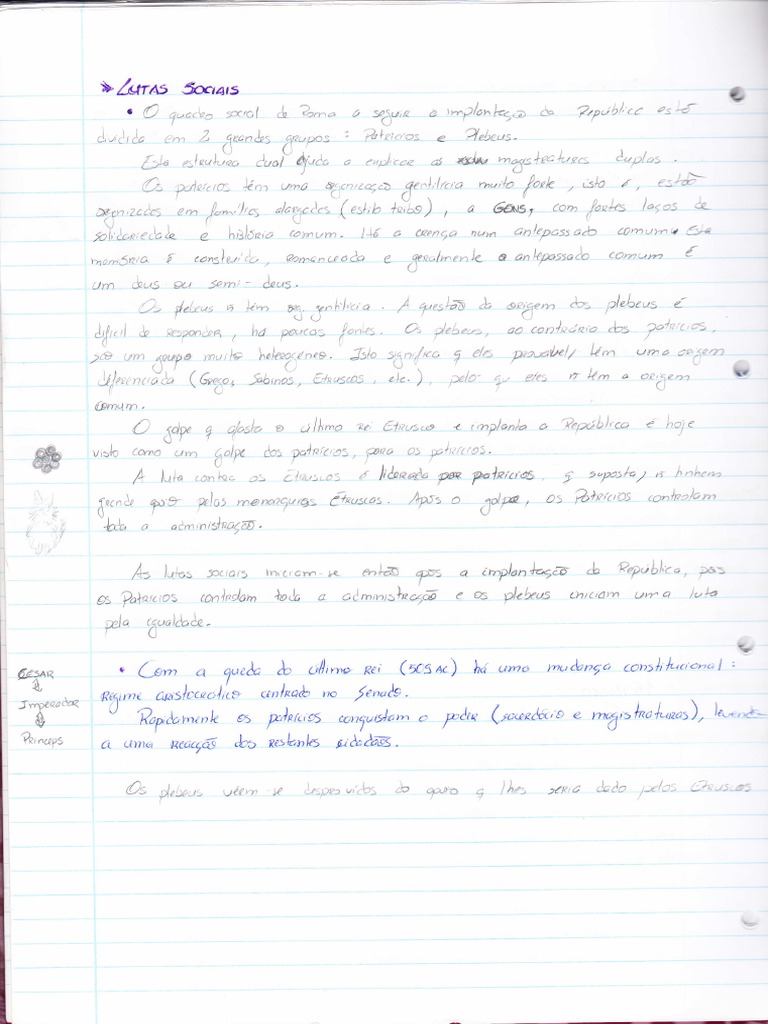 » LUTAS SOCIAIS
• O quadro social de Roma a seguir a implantação da República está
dividida em 2 grandes grupos: Patrícios e Plebeus.
Esta estrutura dual ajuda a explicar as magistraturas duplas.
Os patrícios têm uma organização gentilícia muito forte, isto é, estão
organizados em famílias alargadas (estilo tribo), a GENS, com fortes laços de
solidariedade e história comum. Há a crença num antepassado comum. Esta
memória é construída, romanceada e geralmente o antepassado comum é
um deus ou semi-deus.
Os plebeus ñ têm org. gentilícia. A questão da origem dos plebeus é
difícil de responder, há poucas fontes. Os plebeus, ao contrário dos patrícios,
são um grupo muito heterogéneo. Isto significa q eles provavel/ têm uma origem
diferenciada (Grega, Sabinos, Etruscos, etc.), pelo q eles ñ têm a origem
comum.
O golpe q afasta o último rei Etrusco e implanta a República é hoje
visto como um golpe dos patrícios, para os patrícios.
A luta contra os Etruscos é liderada por patrícios, q suposta/ ñ tinham
grande apoio pelas monarquias Etruscas. Após o golpe, os Patrícios controlam
toda a administração.
As lutas sociais iniciam-se então após a implantação da República, pois
os Patrícios controlam toda a administração e os plebeus iniciam uma luta
pela igualdade.
• Com a queda do último Rei (509AC) há uma mudança constitucional:
Regime aristocrático centrado no Senado.
Rapidamente os patrícios conquistam o poder (sacerdócio e magistraturas), levando
a uma reacção dos restantes cidadãos.
CESAR
Imperador
Princeps
Os plebeus vêem-se desprovidos do apoio q lhes seria dado pelos Etruscos